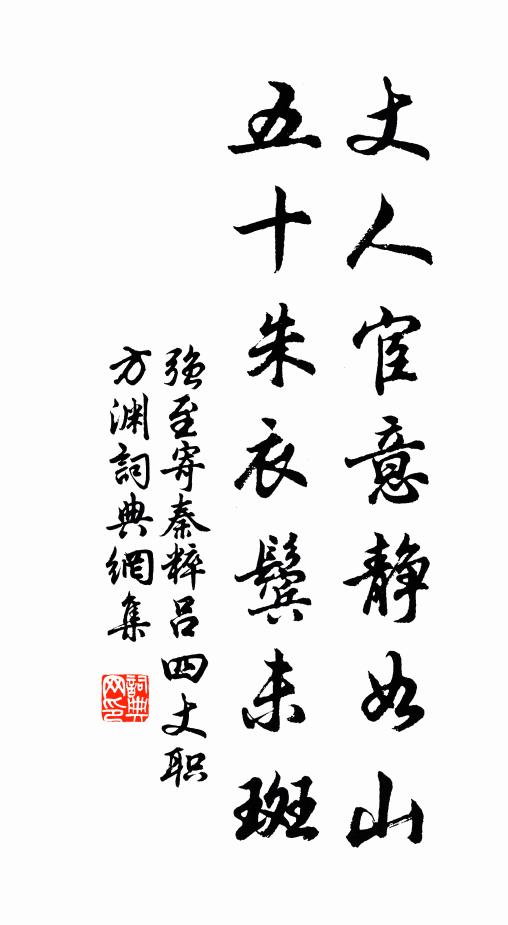 丈人宦意静如山
五十朱衣鬓未斑
强至寄秦粹吕四丈职
方渊詞典網集
詞典网印